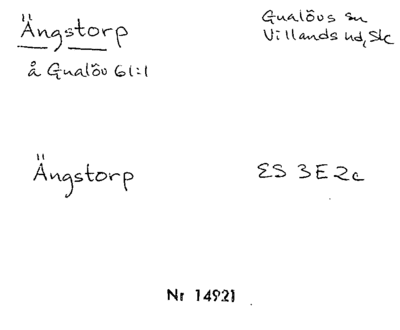 Ängstorp
Gualövs sn
Villands hd, Skc
å Gualöv 61:1
Ängstorp
ES 3E2c
Nr 14921